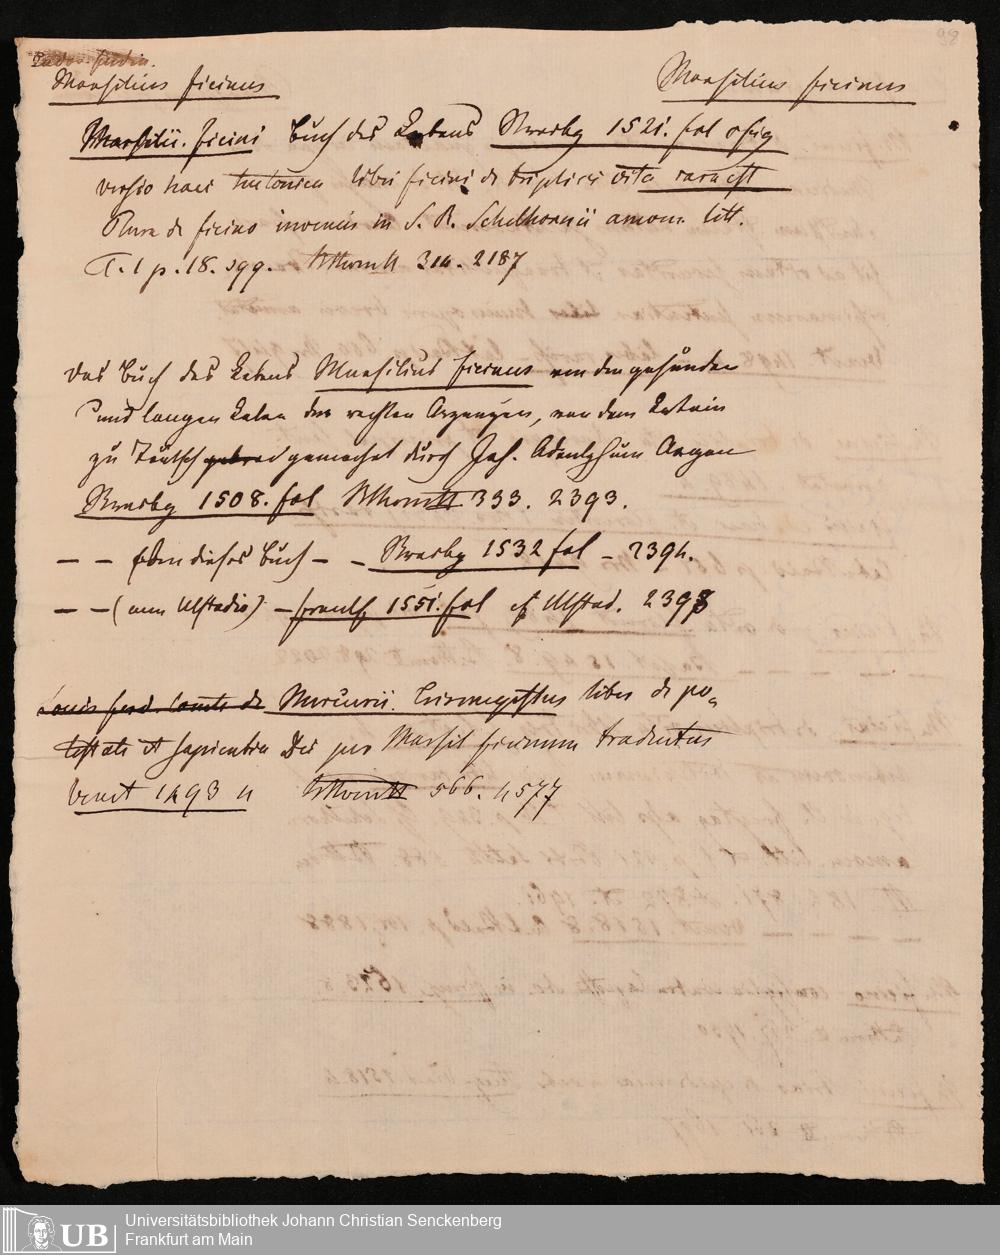 98
Marsilius ficinus Marsilius ficinus
Marsilii. ficini Buch des Lebens Strasbg 1521. fol c fig
versio haec teutonica libri ficini de triplici vita rara est
Plura de ficino invenies in S. R. Schelhornii amoen. litt.
T. 1 p. 18. sqq. 314. 2187
das Buch des Lebens Marsilius ficinus von dem gesunden
und langen Leben der rechten Arzneyen, von dem Latein
zu Teutsch gemachet durch Joh. Adelphum Argen
Strasbg 1508. fol 333. 2393.
— — eben dieses Buch — — Strasbg 1532 fol — 2394.
— — (cum Ulstadio) — francf 1551. fol cf Ulstad. 2398
Louis ferd. comte de Mercurii. Trismegistus liber de po-
testate et sapientia Dei per Marsil ficinum traductus
Venet 1493 4 566. 4577
UB Universitätsbibliothek Johann Christian Senckenberg
Frankfurt am Main